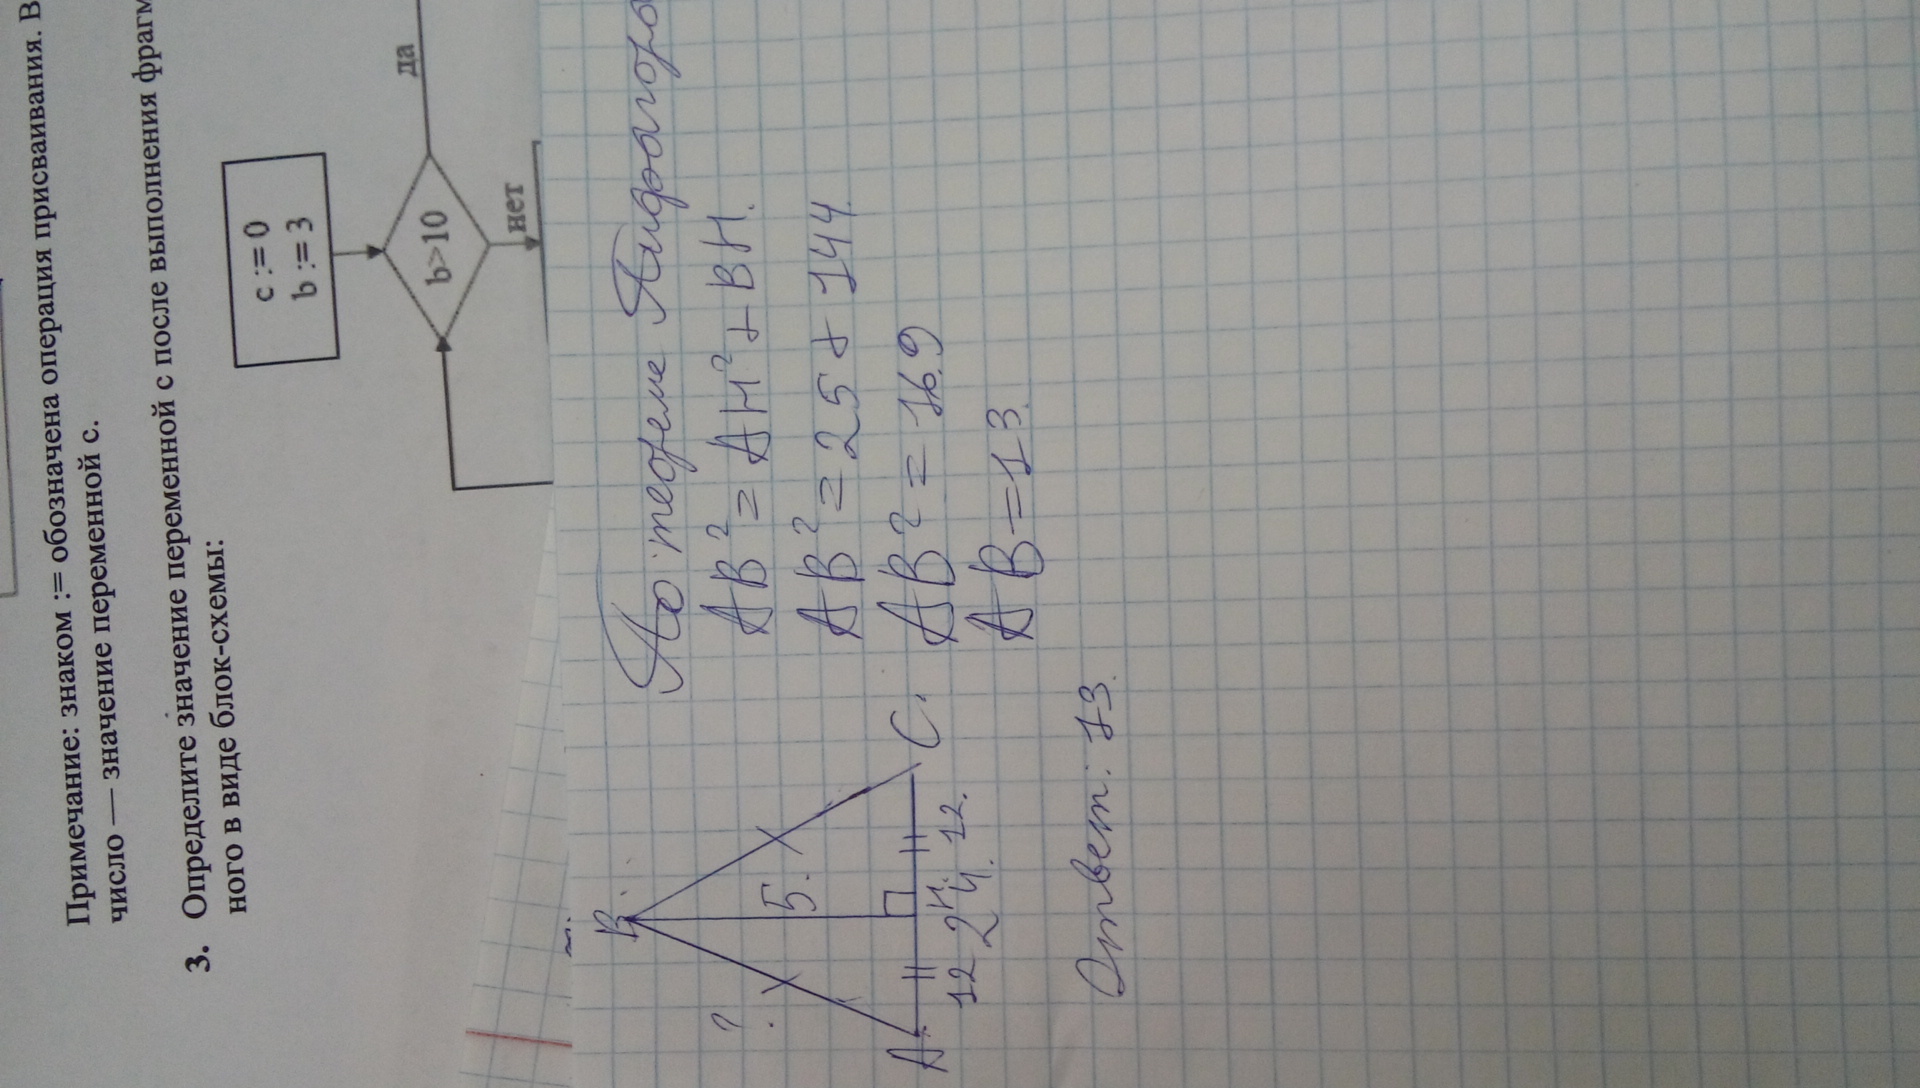 Примечание: знаком := обозначена операция присваивания. В
число — значение переменной с.
3. Определите значение переменной с после выполнения фрагм
ного в виде блок-схемы:
c := 0
b := 3
b>10
да
нет
По теореме Пифагора
AB² = AH² + BH.
AB² = 25 + 144.
AB² = 169
AB = 13.
B
?
5.
A
H.
C.
12
24.
12.
Ответ: 13.